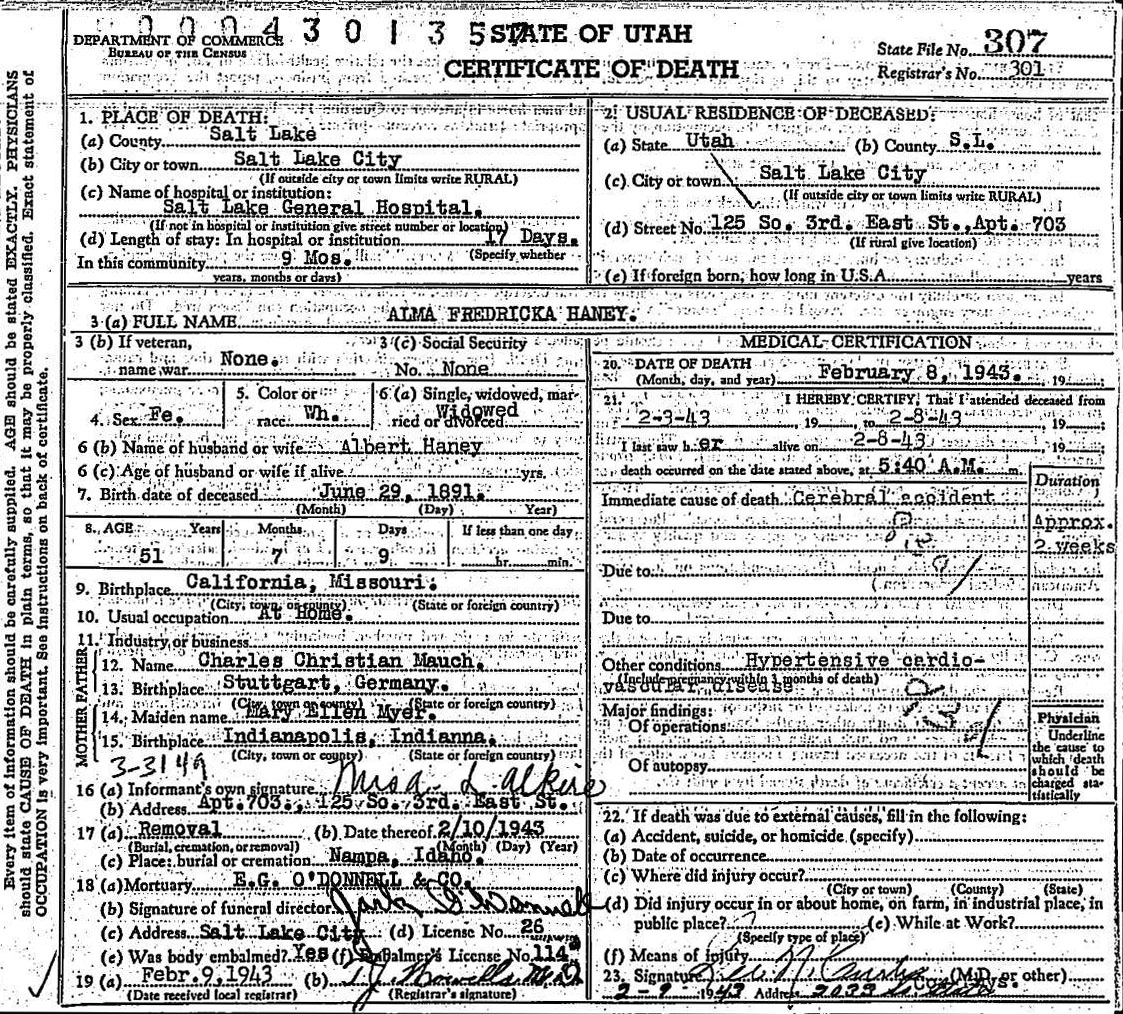 0004301357
DEPARTMENT OF COMMERCE
BUREAU OF THE CENSUS
STATE OF UTAH
CERTIFICATE OF DEATH
State File No. 307
Registrar's No. 301
Every item of information should be carefully supplied. AGE should be stated EXACTLY. PHYSICIANS
should state CAUSE OF DEATH in plain terms, so that it may be properly classified. Exact statement of
OCCUPATION is very important. See instructions on back of certificate.
1. PLACE OF DEATH:
(a) County Salt Lake
(b) City or town Salt Lake City
(If outside city or town limits write RURAL)
(c) Name of hospital or institution:
Salt Lake General Hospital.
(If not in hospital or institution give street number or location)
(d) Length of stay: In hospital or institution 17 Days.
(Specify whether
In this community 9 Mos.
years, months or days)
2. USUAL RESIDENCE OF DECEASED:
(a) State Utah (b) County S.L.
(c) City or town Salt Lake City
(If outside city or town limits write RURAL)
(d) Street No. 125 So. 3rd. East St., Apt. 703
(If rural give location)
(e) If foreign born, how long in U.S.A. years
3 (a) FULL NAME ALMA FREDRICKA HANEY.
3 (b) If veteran,
name war None.
3 (c) Social Security
No. None
4. Sex Fe.
5. Color or
race Wh.
6 (a) Single, widowed, mar-
ried or divorced Widowed
6 (b) Name of husband or wife Albert Haney
6 (c) Age of husband or wife if alive yrs.
7. Birth date of deceased June 29, 1891.
(Month) (Day) Year)
8. AGE Years Months Days If less than one day
51 7 9 hr. min.
9. Birthplace California, Missouri.
(City, town, or county) (State or foreign country)
10. Usual occupation At Home.
11. Industry or business
FATHER
12. Name Charles Christian Mauch.
13. Birthplace Stuttgart, Germany.
(City, town or county) (State or foreign country)
MOTHER
14. Maiden name Mary Ellen Myer.
15. Birthplace Indianapolis, Indianna.
(City, town or county) (State or foreign country)
3-3149
16 (a) Informant's own signature L Alkire
(b) Address Apt. 703., 125 So. 3rd. East St.
17 (a) Removal (b) Date thereof 2/10/1943
(Burial, cremation, or removal) (Month) (Day) (Year)
(c) Place: burial or cremation Nampa, Idaho.
18 (a) Mortuary E.G. O'DONNELL & CO.
(b) Signature of funeral director
(c) Address Salt Lake City (d) License No. 26
(e) Was body embalmed? Yes (f) Embalmer's License No. 114
19 (a) Febr. 9, 1943 (b)
(Date received local registrar) (Registrar's signature)
MEDICAL CERTIFICATION
20. DATE OF DEATH
(Month, day, and year) February 8, 1943. 19
21. I HEREBY CERTIFY, That I attended deceased from
2-3-43 19 to 2-8-43 19
I last saw her alive on 2-8-43 19
death occurred on the date stated above, at 5:40 A.M. m.
Duration
Immediate cause of death Cerebral accident
Approx.
2 weeks
Due to
Due to
Other conditions Hypertensive cardio-
(Include pregnancy within 3 months of death)
vascular disease
Major findings:
Of operations
Of autopsy
Physician
Underline
the cause to
which death
should be
charged sta-
tistically
22. If death was due to external causes, fill in the following:
(a) Accident, suicide, or homicide (specify)
(b) Date of occurrence
(c) Where did injury occur?
(City or town) (County) (State)
(d) Did injury occur in or about home, on farm, in industrial place, in
public place? (e) While at Work?
(Specify type of place)
(f) Means of injury
23. Signature (M.D. or other)
2-9-1943 Address 2033